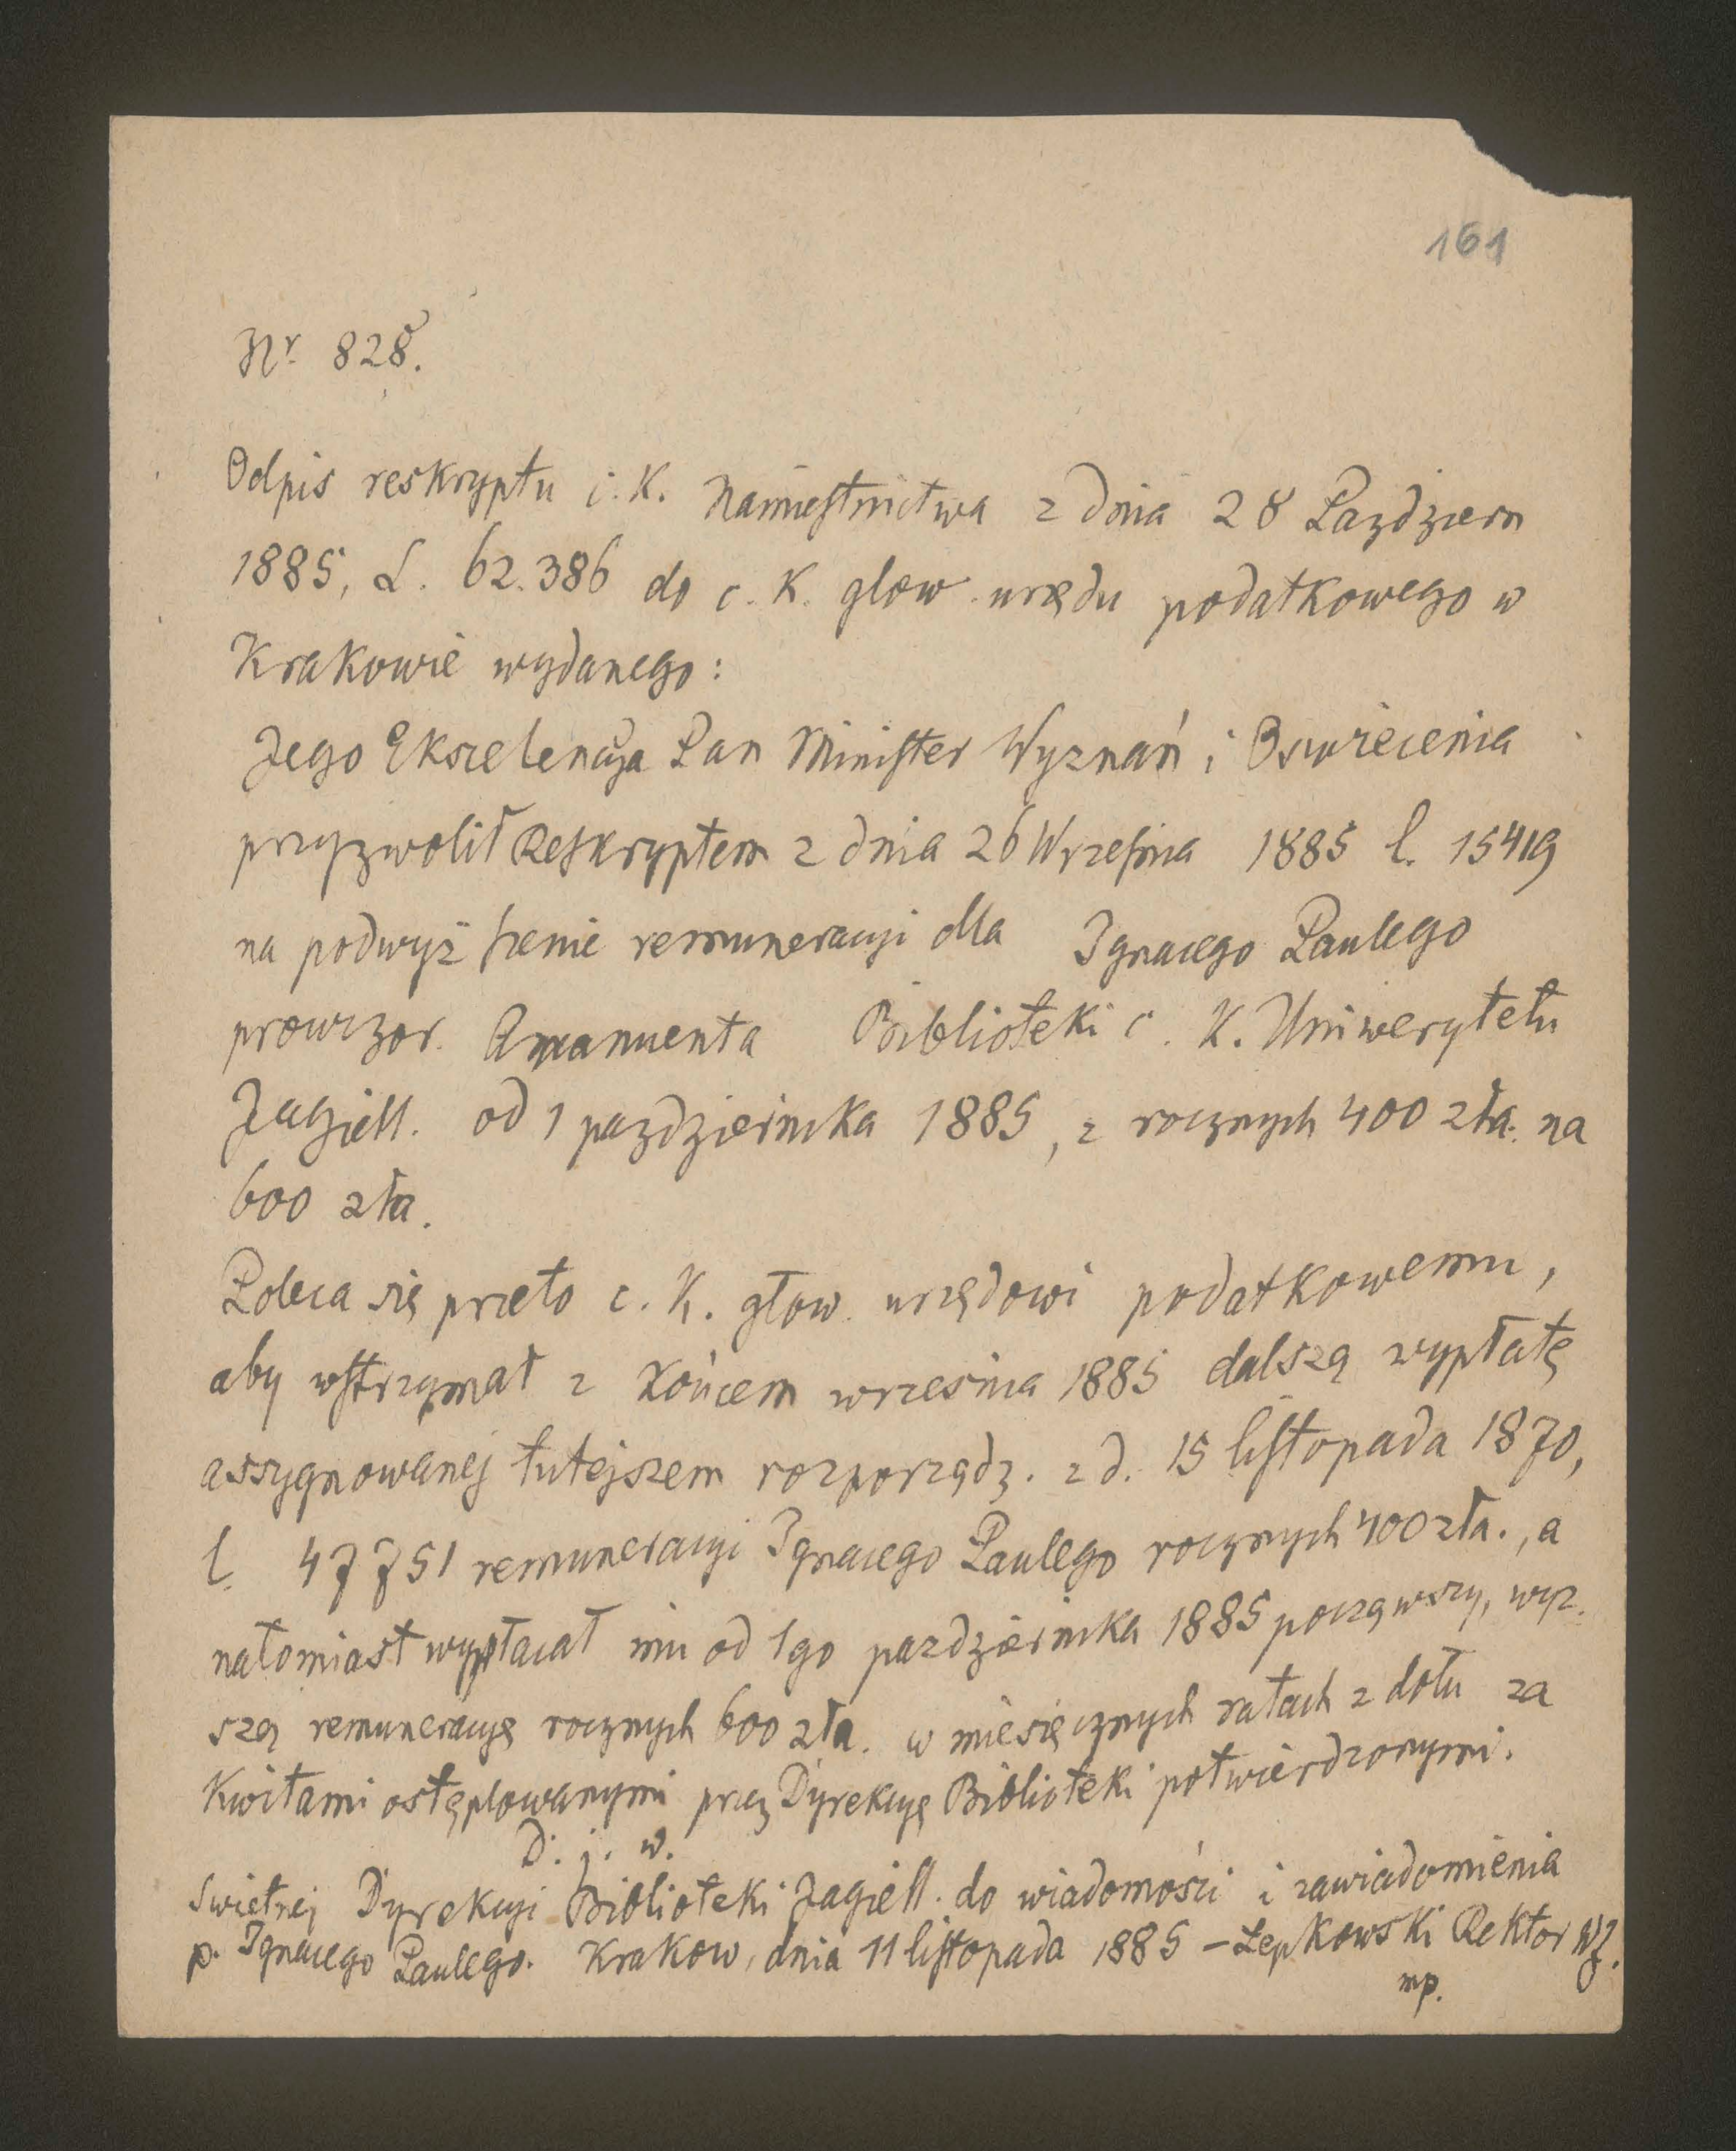 161
Nr. 828.
Odpis reskryptu c. K. Namiestnictwa z dnia 28 Pazdziern
1885, L. 62.386 do c. K. glow. urzędu podatkowego w
Krakowie wydanego:
Jego Ekscelencyja Pan Minister Wyznań i Oswiecenia
przyzwolił Reskryptem z dnia 26 Wrzesnia 1885 l. 15419
na podwyższenie remuneracyi dla Ignacego Paulego
prowizor. Amanuenta Biblioteki c. K. Uniwerytetu
Jagiell. od 1 pazdziernika 1885, z rocznych 400 zła. na
600 zła.
Poleca się przeto c. K. głow. urzędowi podatkowemu,
aby wstrzymał z Końcem wrzesnia 1885 dalszą wypłatę
assygnowanej tutejszem rozporządz. z d. 15 listopada 1870,
l. 47751 remuneracyi Ignacego Paulego rocznych 400 zła., a
natomiast wypłacał mu od 1go pazdziernika 1885 począwszy, wyz.
szą remuneracyę rocznych 600 zła. w miesięcznych ratach z dołu za
Kwitami ostęplowanymi przez Dyrekcyę Biblioteki potwierdzonymi.
D. j. w.
Swietnej Dyrekcyi Biblioteki Jagiell. do wiadomości i zawiadomienia
p. Ignacego Paulego. Krakow, dnia 11 listopada 1885 – Łepkowski Rektor UJ.
mp.